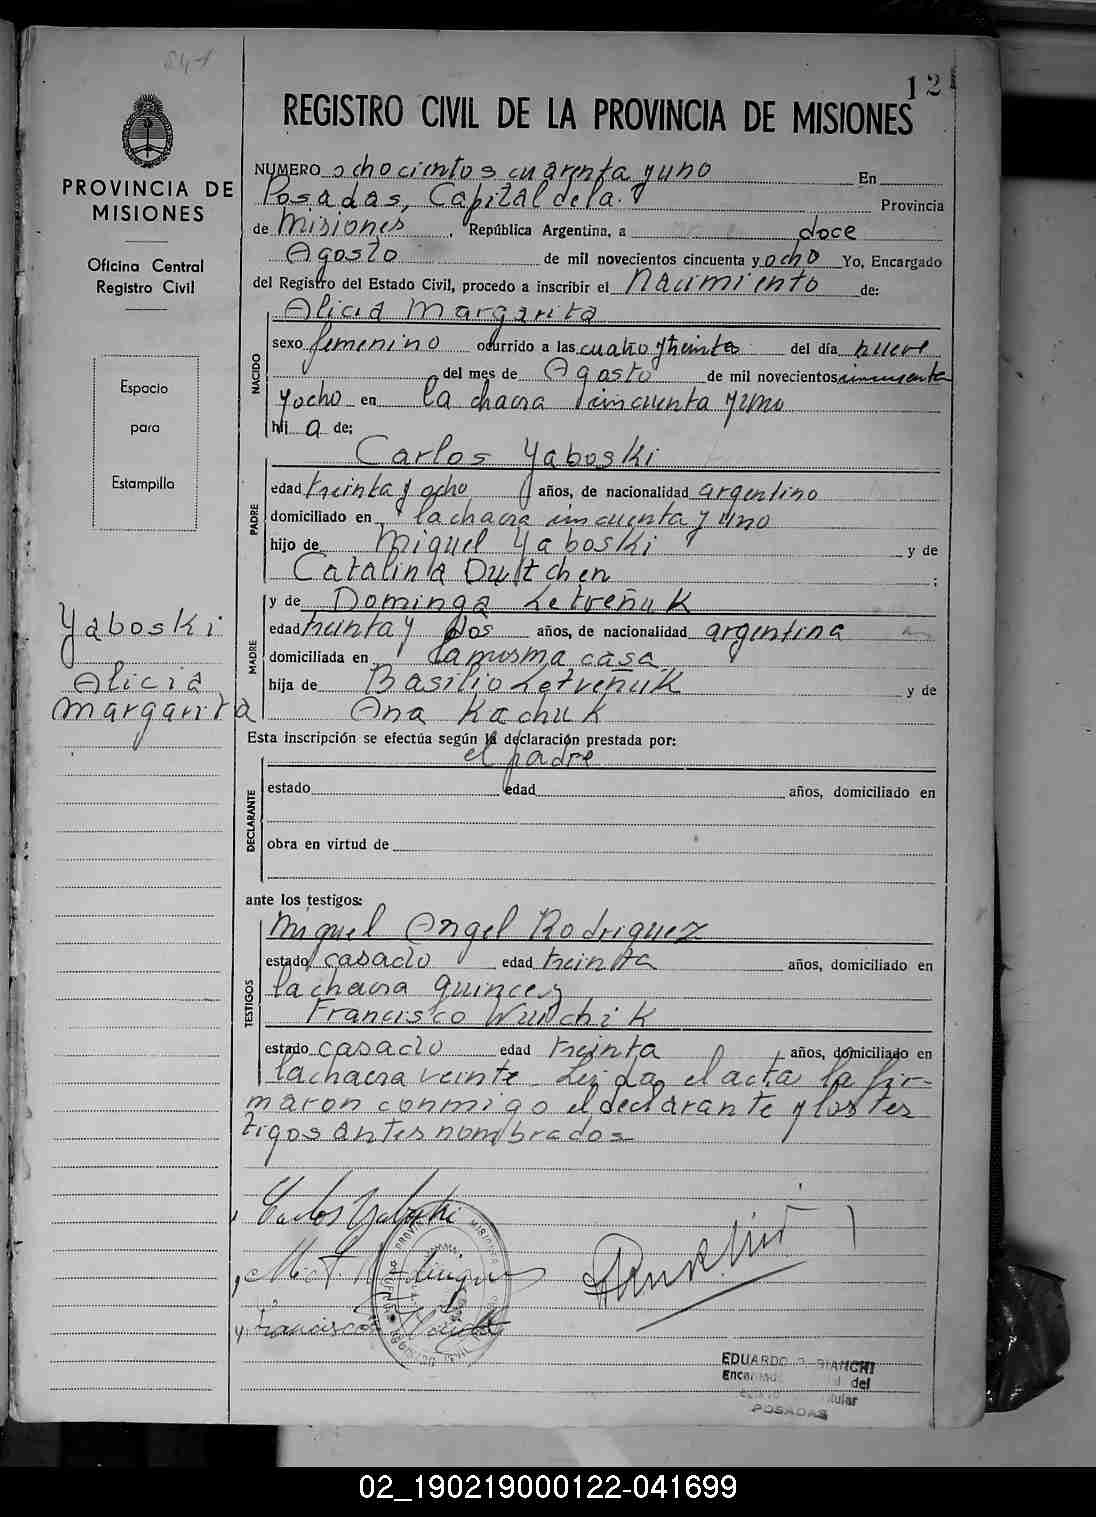 841
12
REGISTRO CIVIL DE LA PROVINCIA DE MISIONES
PROVINCIA DE
MISIONES
Oficina Central
Registro Civil
Espacio
para
Estampilla
Yaboski
Alicia
Margarita
NUMERO ochocientos cuarenta y uno En
Posadas, Capital de la Provincia
de Misiones, República Argentina, a doce
Agosto de mil novecientos cincuenta y ocho Yo, Encargado
del Registro del Estado Civil, procedo a inscribir el Nacimiento de:
NACIDO
Alicia Margarita
sexo femenino ocurrido a las cuatro y treinta del día nueve
del mes de Agosto de mil novecientos cincuenta
y ocho en la chacra cincuenta y uno
hij a de:
PADRE
Carlos Yaboski
edad treinta y ocho años, de nacionalidad argentino
domiciliado en la chacra cincuenta y uno
hijo de Miguel Yaboski y de
Catalina Dutchen ;
MADRE
y de Dominga Letveñuk
edad treinta y dos años, de nacionalidad argentina
domiciliada en la misma casa
hija de Basilio Letveñuk y de
Ana Kachuk
Esta inscripción se efectúa según la declaración prestada por:
DECLARANTE
el padre
estado edad años, domiciliado en
obra en virtud de
ante los testigos:
TESTIGOS
Miguel Angel Rodriguez
estado casado edad treinta años, domiciliado en
la chacra quince y
Francisco Wunchik
estado casado edad treinta años, domiciliado en
la chacra veinte. Leida el acta la fir-
maron conmigo el declarante y los tes
tigos antes nombrados
Carlos Yaboski
Francisco
EDUARDO BIANCHI
del
Titular
POSADAS
02_190219000122-041699